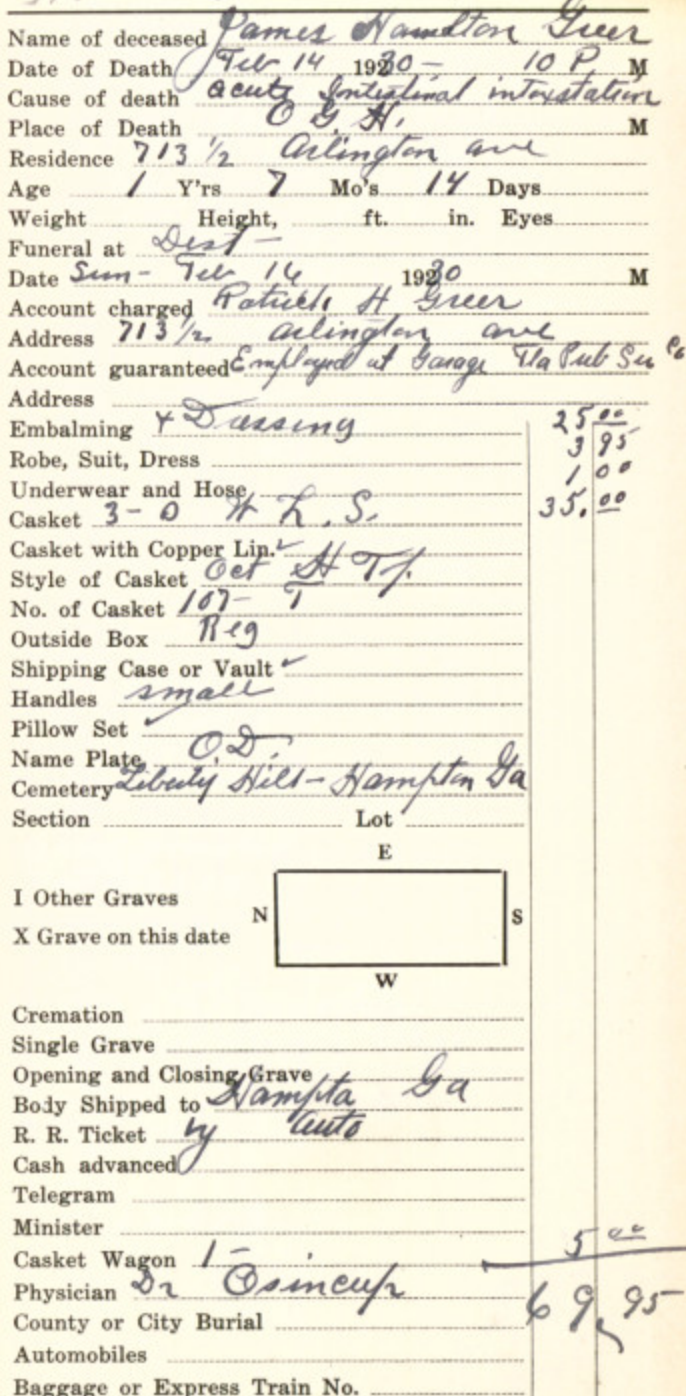 Name of deceased James Hamilton Greer
Date of Death Feb 14 1930 - 10 P M
Cause of death acute Intestinal intoxstation
Place of Death O G H. M
Residence 713 1/2 Arlington ave
Age 1 Y'rs 7 Mo's 14 Days
Weight Height, ft. in. Eyes
Funeral at Dest -
Date Sun - Feb 16 1930 M
Account charged Patrick H Greer
Address 713 1/2 arlington ave
Account guaranteed Employed at Garage Fla Pub Ser Co
Address
Embalming + Dressing 25 00
Robe, Suit, Dress 3 95
Underwear and Hose 1 00
Casket 3-0 W L. S. 35.00
Casket with Copper Lin. ✓
Style of Casket Oct H Tf.
No. of Casket 107- T
Outside Box Reg
Shipping Case or Vault ✓
Handles small
Pillow Set ✓
Name Plate O.D.
Cemetery Liberty Hill - Hampton Ga
Section Lot
E
I Other Graves
N S
X Grave on this date
W
Cremation
Single Grave
Opening and Closing Grave
Body Shipped to Hampta Ga
R. R. Ticket by auto
Cash advanced
Telegram
Minister
Casket Wagon 1- 5 00
Physician Dr Osincup 69.95
County or City Burial
Automobiles
Baggage or Express Train No.